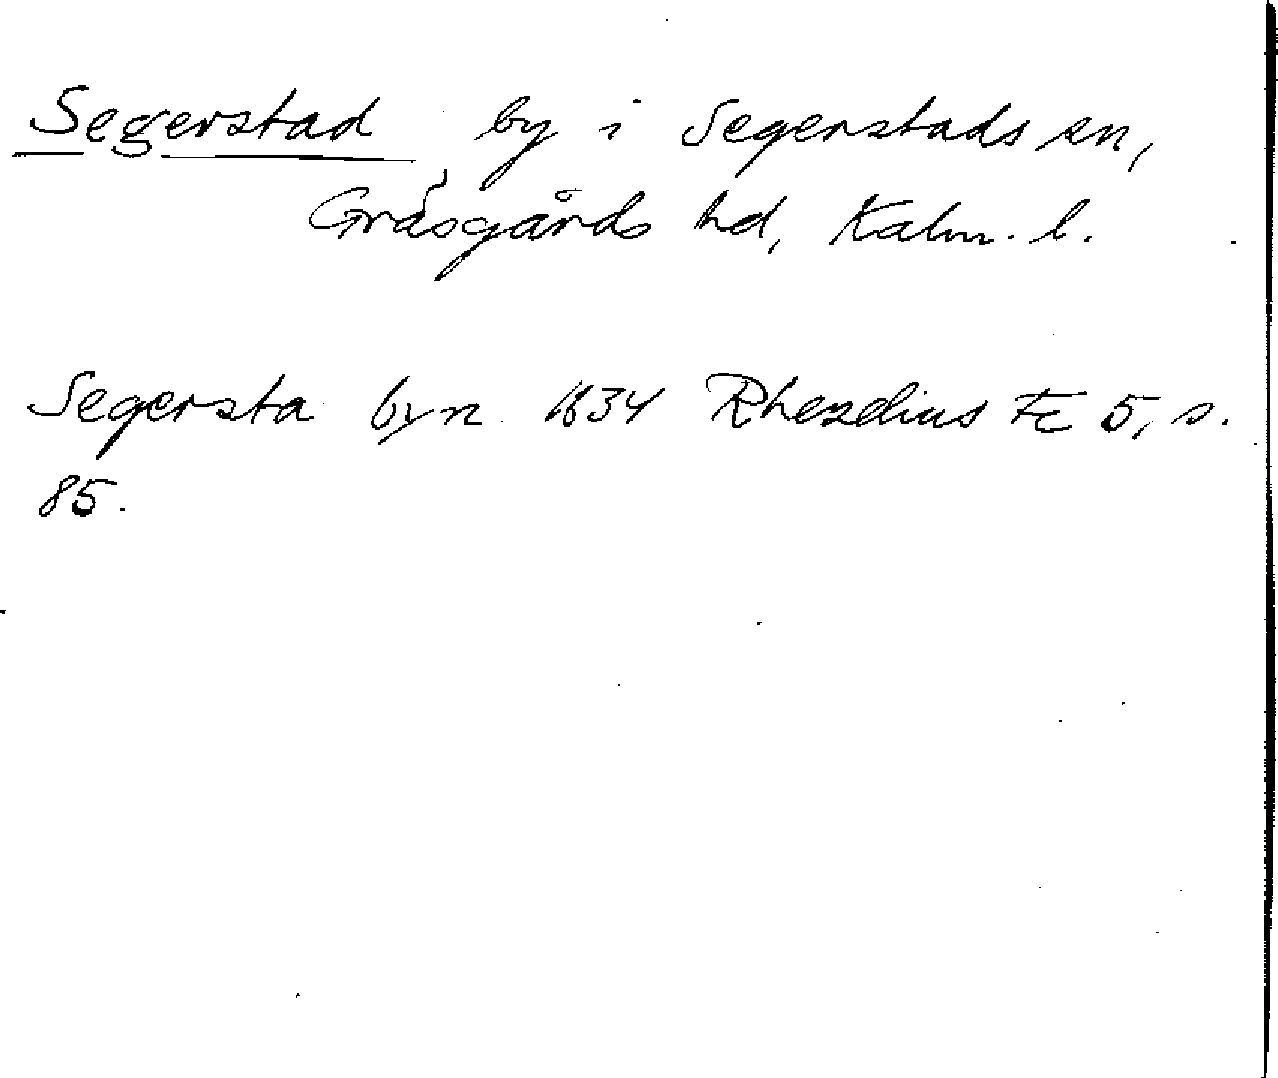 Segerstad by i Segerstads sn,
Gräsgårds hd, Kalm. l.
Segersta byn 1634 Rhezelius Fc 5, s.
85.